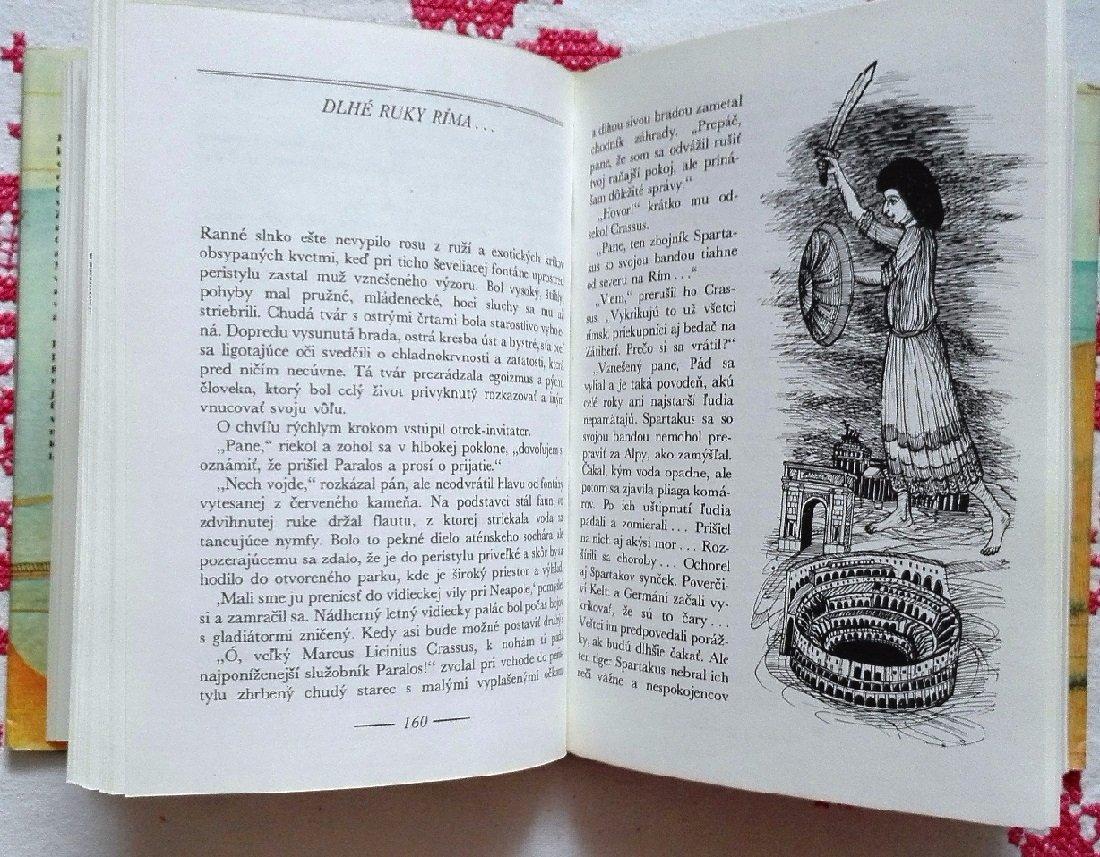 DLHÉ RUKY RÍMA...
Ranné slnko ešte nevypilo rosu z ruží a exotických kríkov
obsypaných kvetmi, keď pri ticho ševeliacej fontáne uprostred
peristylu zastal muž vznešeného výzoru. Bol vysoký, štíhly,
pohyby mal pružné, mládenecké, hoci sluchy sa mu už
striebrili. Chudá tvár s ostrými črtami bola starostlivo vyhole-
ná. Dopredu vysunutá brada, ostrá kresba úst a bystré,
sa ligotajúce oči svedčili o chladnokrvnosti a zaťatosti, ktorá
pred ničím necúvne. Tá tvár prezrádzala egoizmus a pýchu
človeka, ktorý bol celý život privyknutý rozkazovať a iným
vnucovať svoju vôľu.
O chvíľu rýchlym krokom vstúpil otrok-invitator.
„Pane,“ riekol a zohol sa v hlbokej poklone, „dovoľujem si
oznámiť, že prišiel Paralos a prosí o prijatie.“
„Nech vojde,“ rozkázal pán, ale neodvrátil hlavu od fontány
vytesanej z červeného kameňa. Na podstavci stál faun
zdvihnutej ruke držal flautu, z ktorej striekala voda na
tancujúce nymfy. Bolo to pekné dielo aténskeho sochára, ale
pozerajúcemu sa zdalo, že je do peristylu priveľké a skôr by sa
hodilo do otvoreného parku, kde je široký priestor a výhľad.
‚Mali sme ju preniesť do vidieckej vily pri Neapole,‘ pomyslel
si a zamračil sa. Nádherný letný vidiecky palác bol počas bojov
s gladiátormi zničený. Kedy asi bude možné postaviť druhý
„Ó, veľký Marcus Licinius Crassus, k nohám ti padá
najponíženejší služobník Paralos!“ zvolal pri vchode do peris-
tylu zhrbený chudý starec s malými vyplašenými očkami
160
a dlhou sivou bradou zametal
chodník záhrady. „Prepáč,
pane, že som sa odvážil rušiť
tvoj raňajší pokoj, ale priná-
šam dôležité správy.“
„Hovor!“ krátko mu od-
sekol Crassus.
„Pane, ten zbojník Sparta-
kus so svojou bandou tiahne
od severu na Rím...“
„Viem,“ prerušil ho Cras-
sus. „Vykrikujú to už všetci
rímski priekupníci aj bedač na
Zátiberí. Prečo si sa vrátil?“
„Vznešený pane, Pád sa
vylial a je taká povodeň, akú
celé roky ani najstarší ľudia
nepamätajú. Spartakus sa so
svojou bandou nemohol pre-
praviť za Alpy, ako zamýšľal.
Čakal, kým voda opadne, ale
potom sa zjavila pliaga komá-
rov. Po ich uštipnutí ľudia
padali a zomierali... Prišiel
na nich aj akýsi mor... Roz-
šírili sa choroby... Ochorel
aj Spartakov synček. Poverči-
ví Kelti a Germáni začali vy-
krikovať, že sú to čary...
Veštci im predpovedali poráž-
ky, ak budú dlhšie čakať. Ale
tiger Spartakus nebral ich
reči vážne a nespokojencov